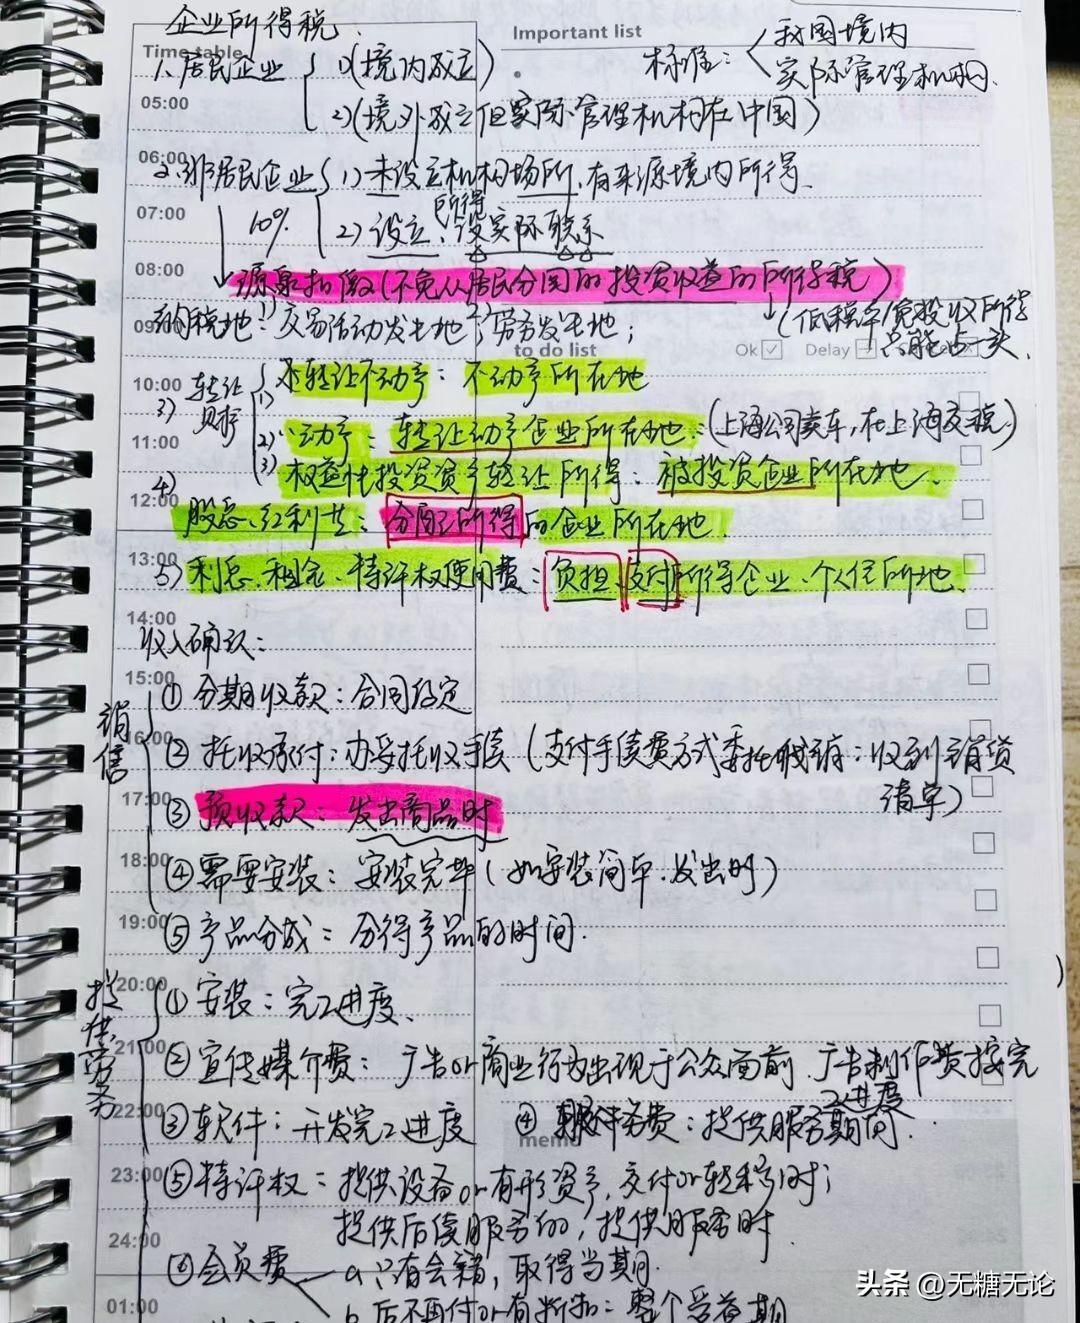 企业所得税
Important list
Time table
1、居民企业 1)(境内成立) 标准:我国境内
实际管理机构.
05:00
2)(境外成立但实际管理机构在中国)
06:00
2.非居民企业 1)未设立机构场所,有来源境内所得.
07:00
10% 2)设立、所得没实际联系
08:00
源泉扣缴(不免从居民分回的投资收益的所得税)
09:00
纳税地:1)交易活动发生地;2)劳务发生地; (低税率/免投收所得
只能占一头.
to do list
Ok Delay
10:00
3)转让财产 1)转让不动产:不动产所在地
11:00
2)动产:转让动产企业所在地.(上海公司卖车,在上海交税.)
3)权益性投资资产转让所得:被投资企业所在地.
12:00
4)股息、红利等:分配所得的企业所在地.
13:00
5)利息、租金、特许权使用费:负担、支付所得企业、个人住所地.
14:00
收入确认:
15:00
销售
①分期收款:合同约定
16:00
②托收承付:办妥托收手续(支付手续费方式委托代销:收到销货
清单)
17:00
③预收款:发出商品时
18:00
④需要安装:安装完毕(如安装简单.发出时)
19:00
⑤产品分成:分得产品的时间.
20:00
提供劳务
①安装:完工进度、
21:00
②宣传媒介费:广告or商业行为出现于公众面前.广告制作费按完
工进度
22:00
③软件:开发完工进度 ④服务费:提供服务期间.
memo
23:00
⑤特许权:提供设备or有形资产,交付or转移时;
24:00
提供后续服务的,提供服务时.
⑥会员费 a 只有会籍,取得当期.
01:00
b 后不再付or有折扣:整个受益期
头条 @无糖无论